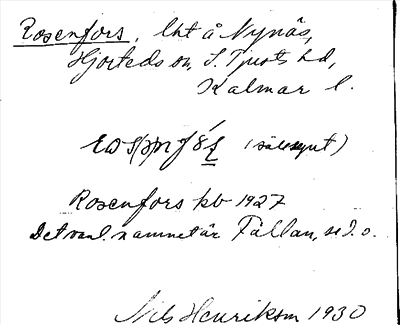 Rosenfors, lht å Nynäs,
Hjorteds sn, S. Tjusts hd,
Kalmar l.
(sällsynt)
Rosenfors kb 1927
Det vanl. namnet är Fällan, se d. o.
Nils Henrikson 1930